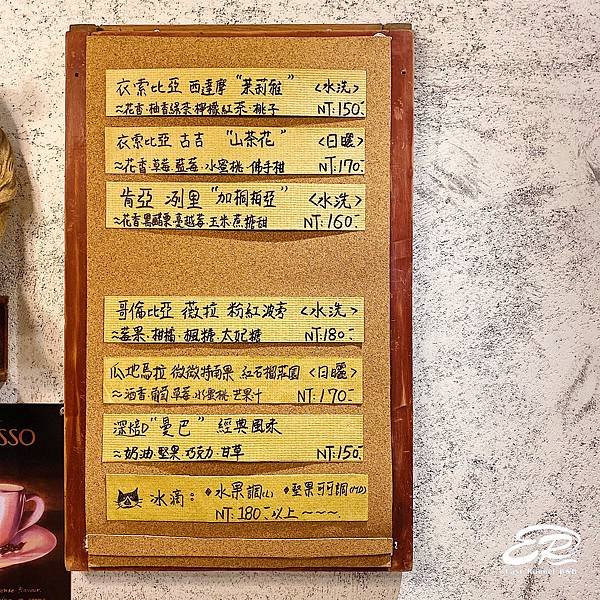 衣索比亞 西達摩 "茉莉雅" <水洗>
~花香·柚香綠茶·檸檬紅茶·桃子 NT:150
衣索比亞 古吉 "山茶花" <日曬>
~花香·草莓·藍莓·水蜜桃·佛手柑 NT:170
肯亞 冽里 "加桐柏亞" <水洗>
~花香·黑醋栗·蔓越莓·玉米·蔗糖甜 NT:160
哥倫比亞 薇拉 粉紅波旁 <水洗>
~莓果·柑橘·楓糖·太妃糖 NT:180
瓜地馬拉 微微特南果 紅石榴莊園 <日曬>
~酒香·葡萄·草莓·水蜜桃·芒果汁 NT:170
深焙D "曼巴" 經典風味
~奶油·堅果·巧克力·甘草 NT:150
冰滴: ♦水果調(L) ♦堅果可可調(MD)
NT:180以上~~~
SSO
ER
East Runner BNB